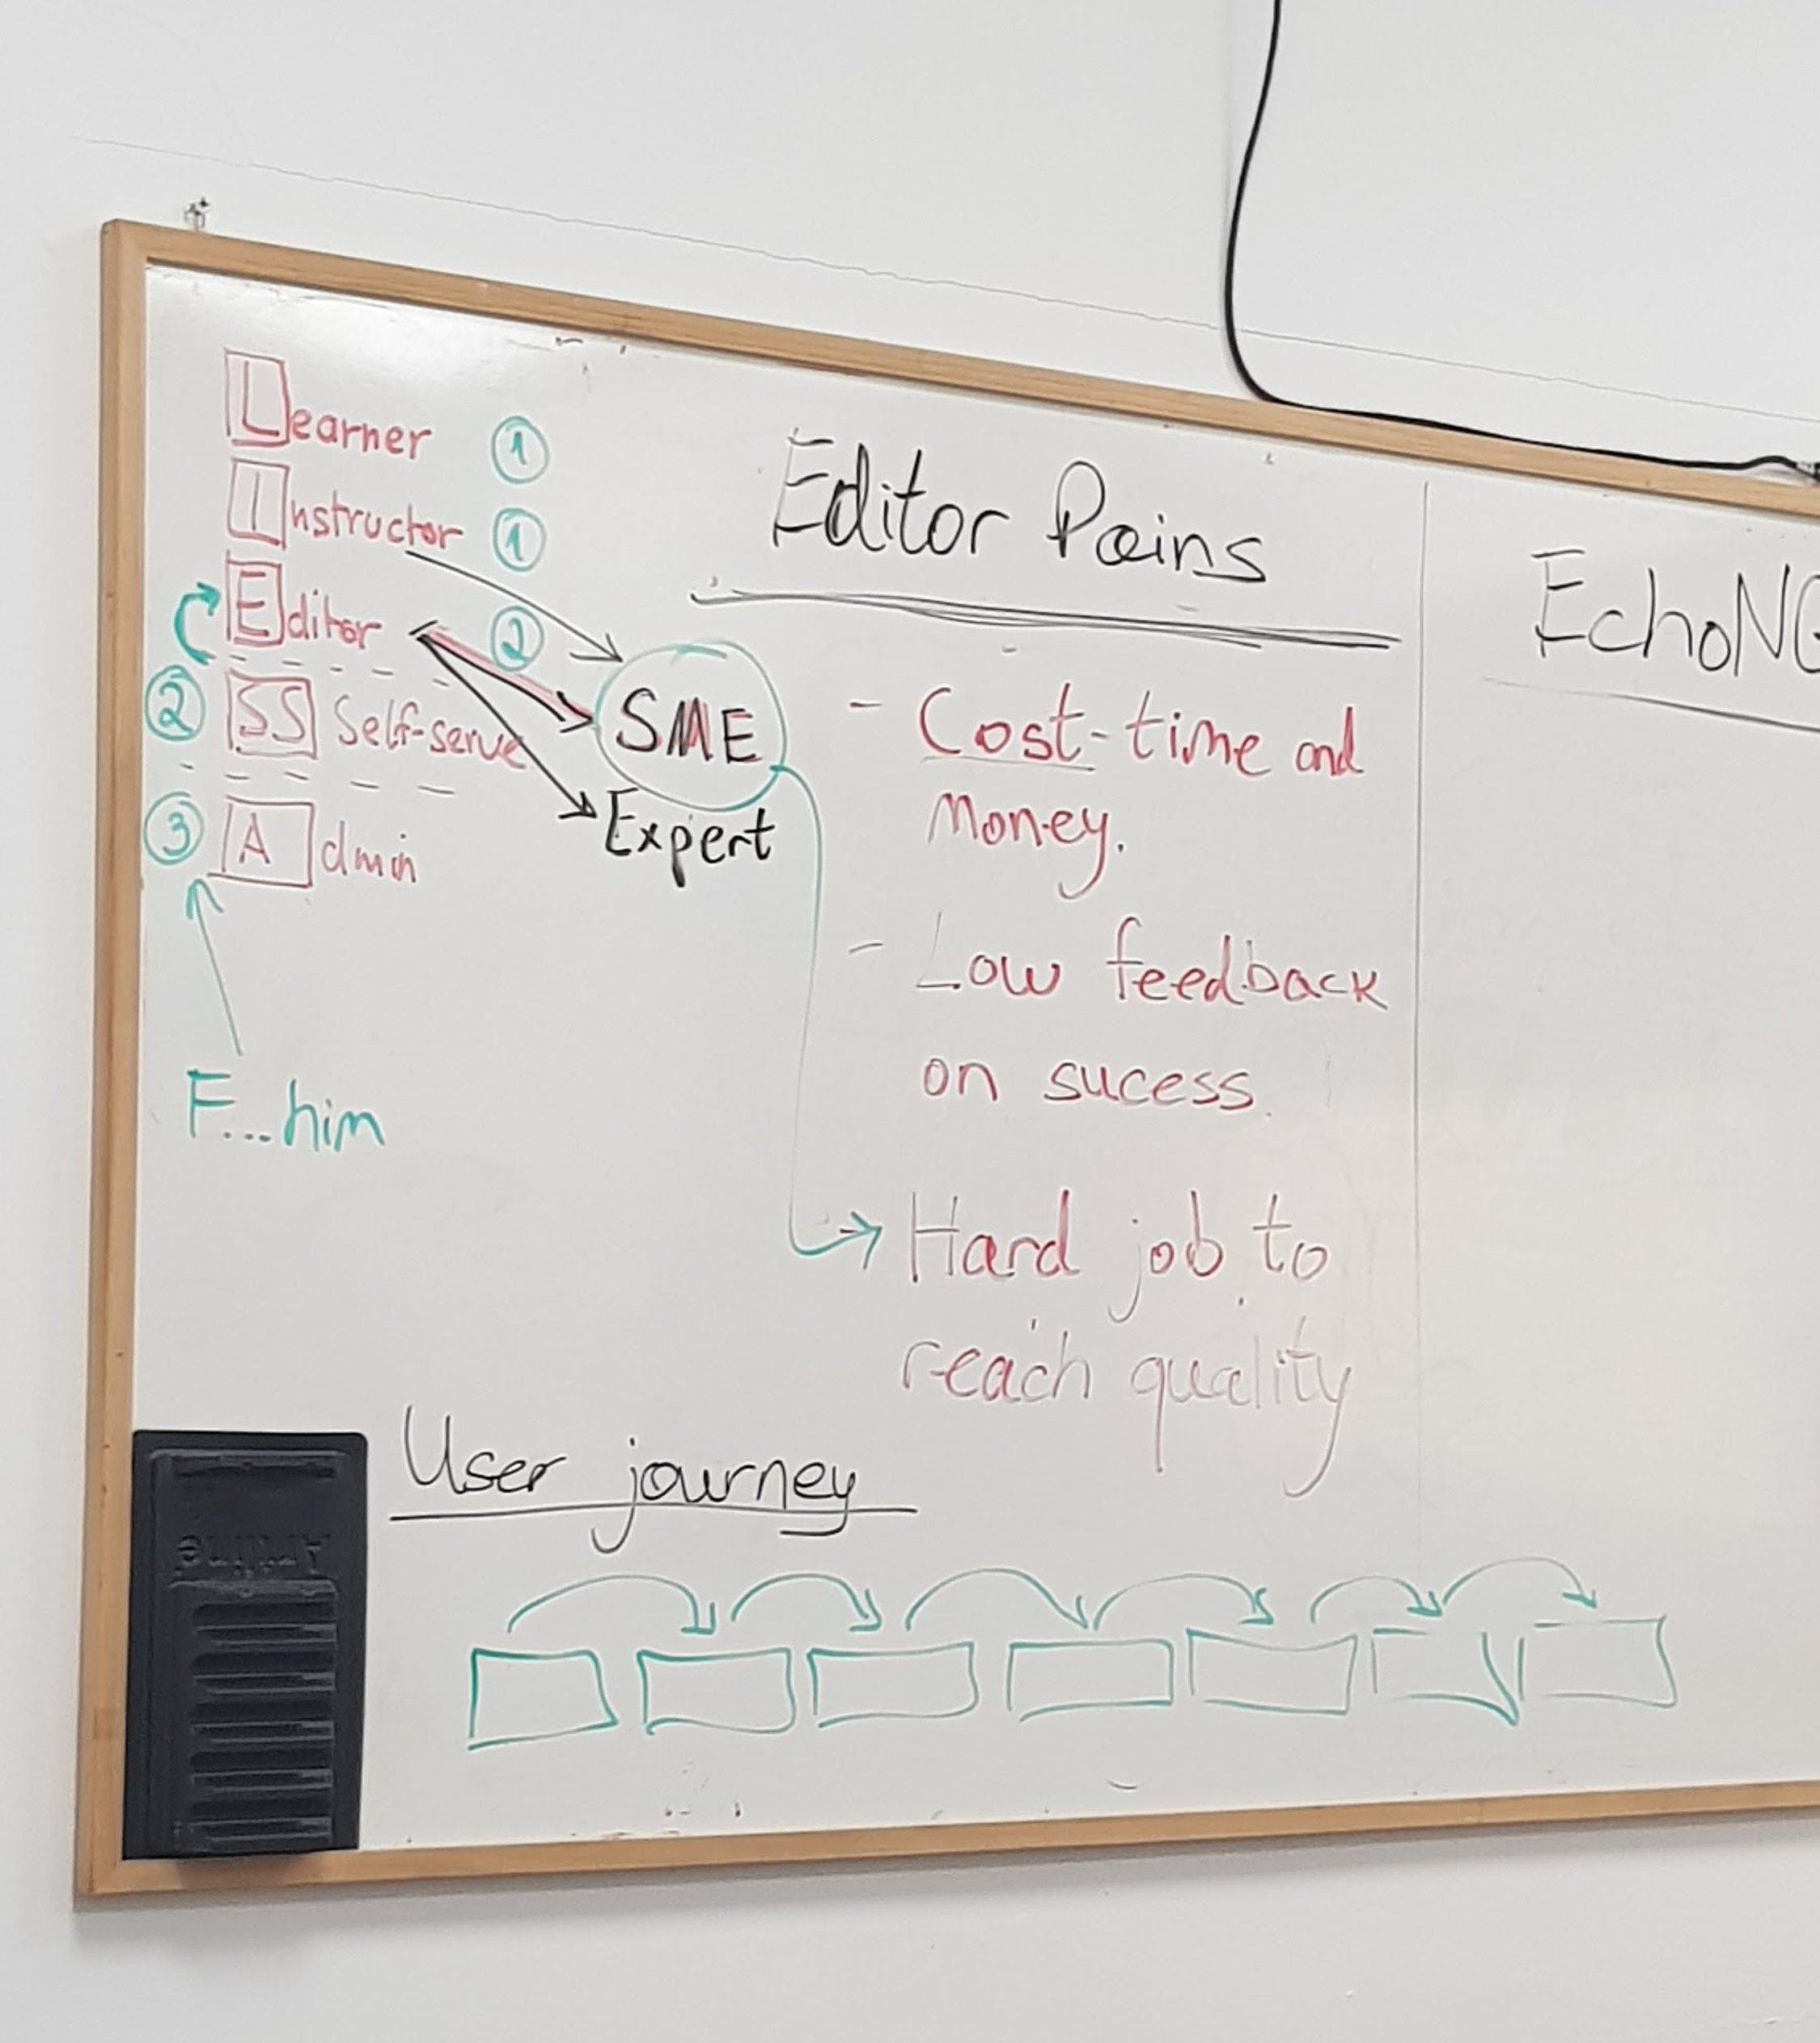 Learner 1
Instructor 1
Editor 2
2 SS Self-serve
3 Admin
SME
Expert
F...him
Editor Pains
- Cost-time and
Money.
- Low feedback
on sucess.
Hard job to
reach quality
EchoNG
User journey